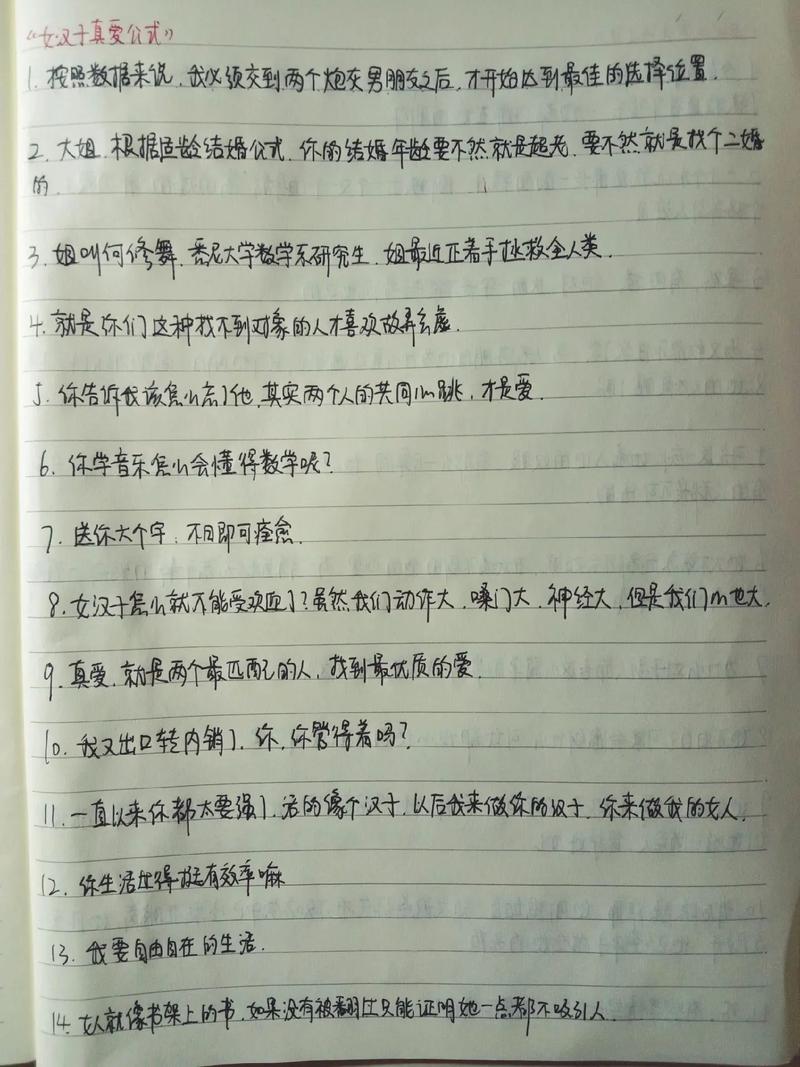 《女汉子真爱公式》
1. 按照数据来说，我必须交到两个炮灰男朋友之后，才开始达到最佳的选择位置.
2. 大姐，根据适龄结婚公式，你的结婚年龄要不然就是超龙，要不然就是找个二婚
的.
3. 姐叫何修舞，悉尼大学数学系研究生，姐最近正着手拯救全人类.
4. 就是你们这种找不到对象的人才喜欢故弄玄虚.
5. 你告诉我该怎么忘了他，其实两个人的共同心跳，才是爱.
6. 你学音乐怎么会懂得数学呢?
7. 送你六个字：不日即可痊愈.
8. 女汉子怎么就不能受欢迎了?虽然我们动作大、嗓门大、神经大，但是我们心也大.
9. 真爱，就是两个最匹配的人，找到最优质的爱.
10. 我又出口转内销了，你，你管得着吗?
11. 一直以来你都太要强了，活的像个汉子，以后我来做你的汉子，你来做我的女人.
12. 你生活过得挺有效率嘛
13. 我要自由自在的生活.
14. 女人就像书架上的书，如果没有被翻过只能证明她一点都不吸引人.